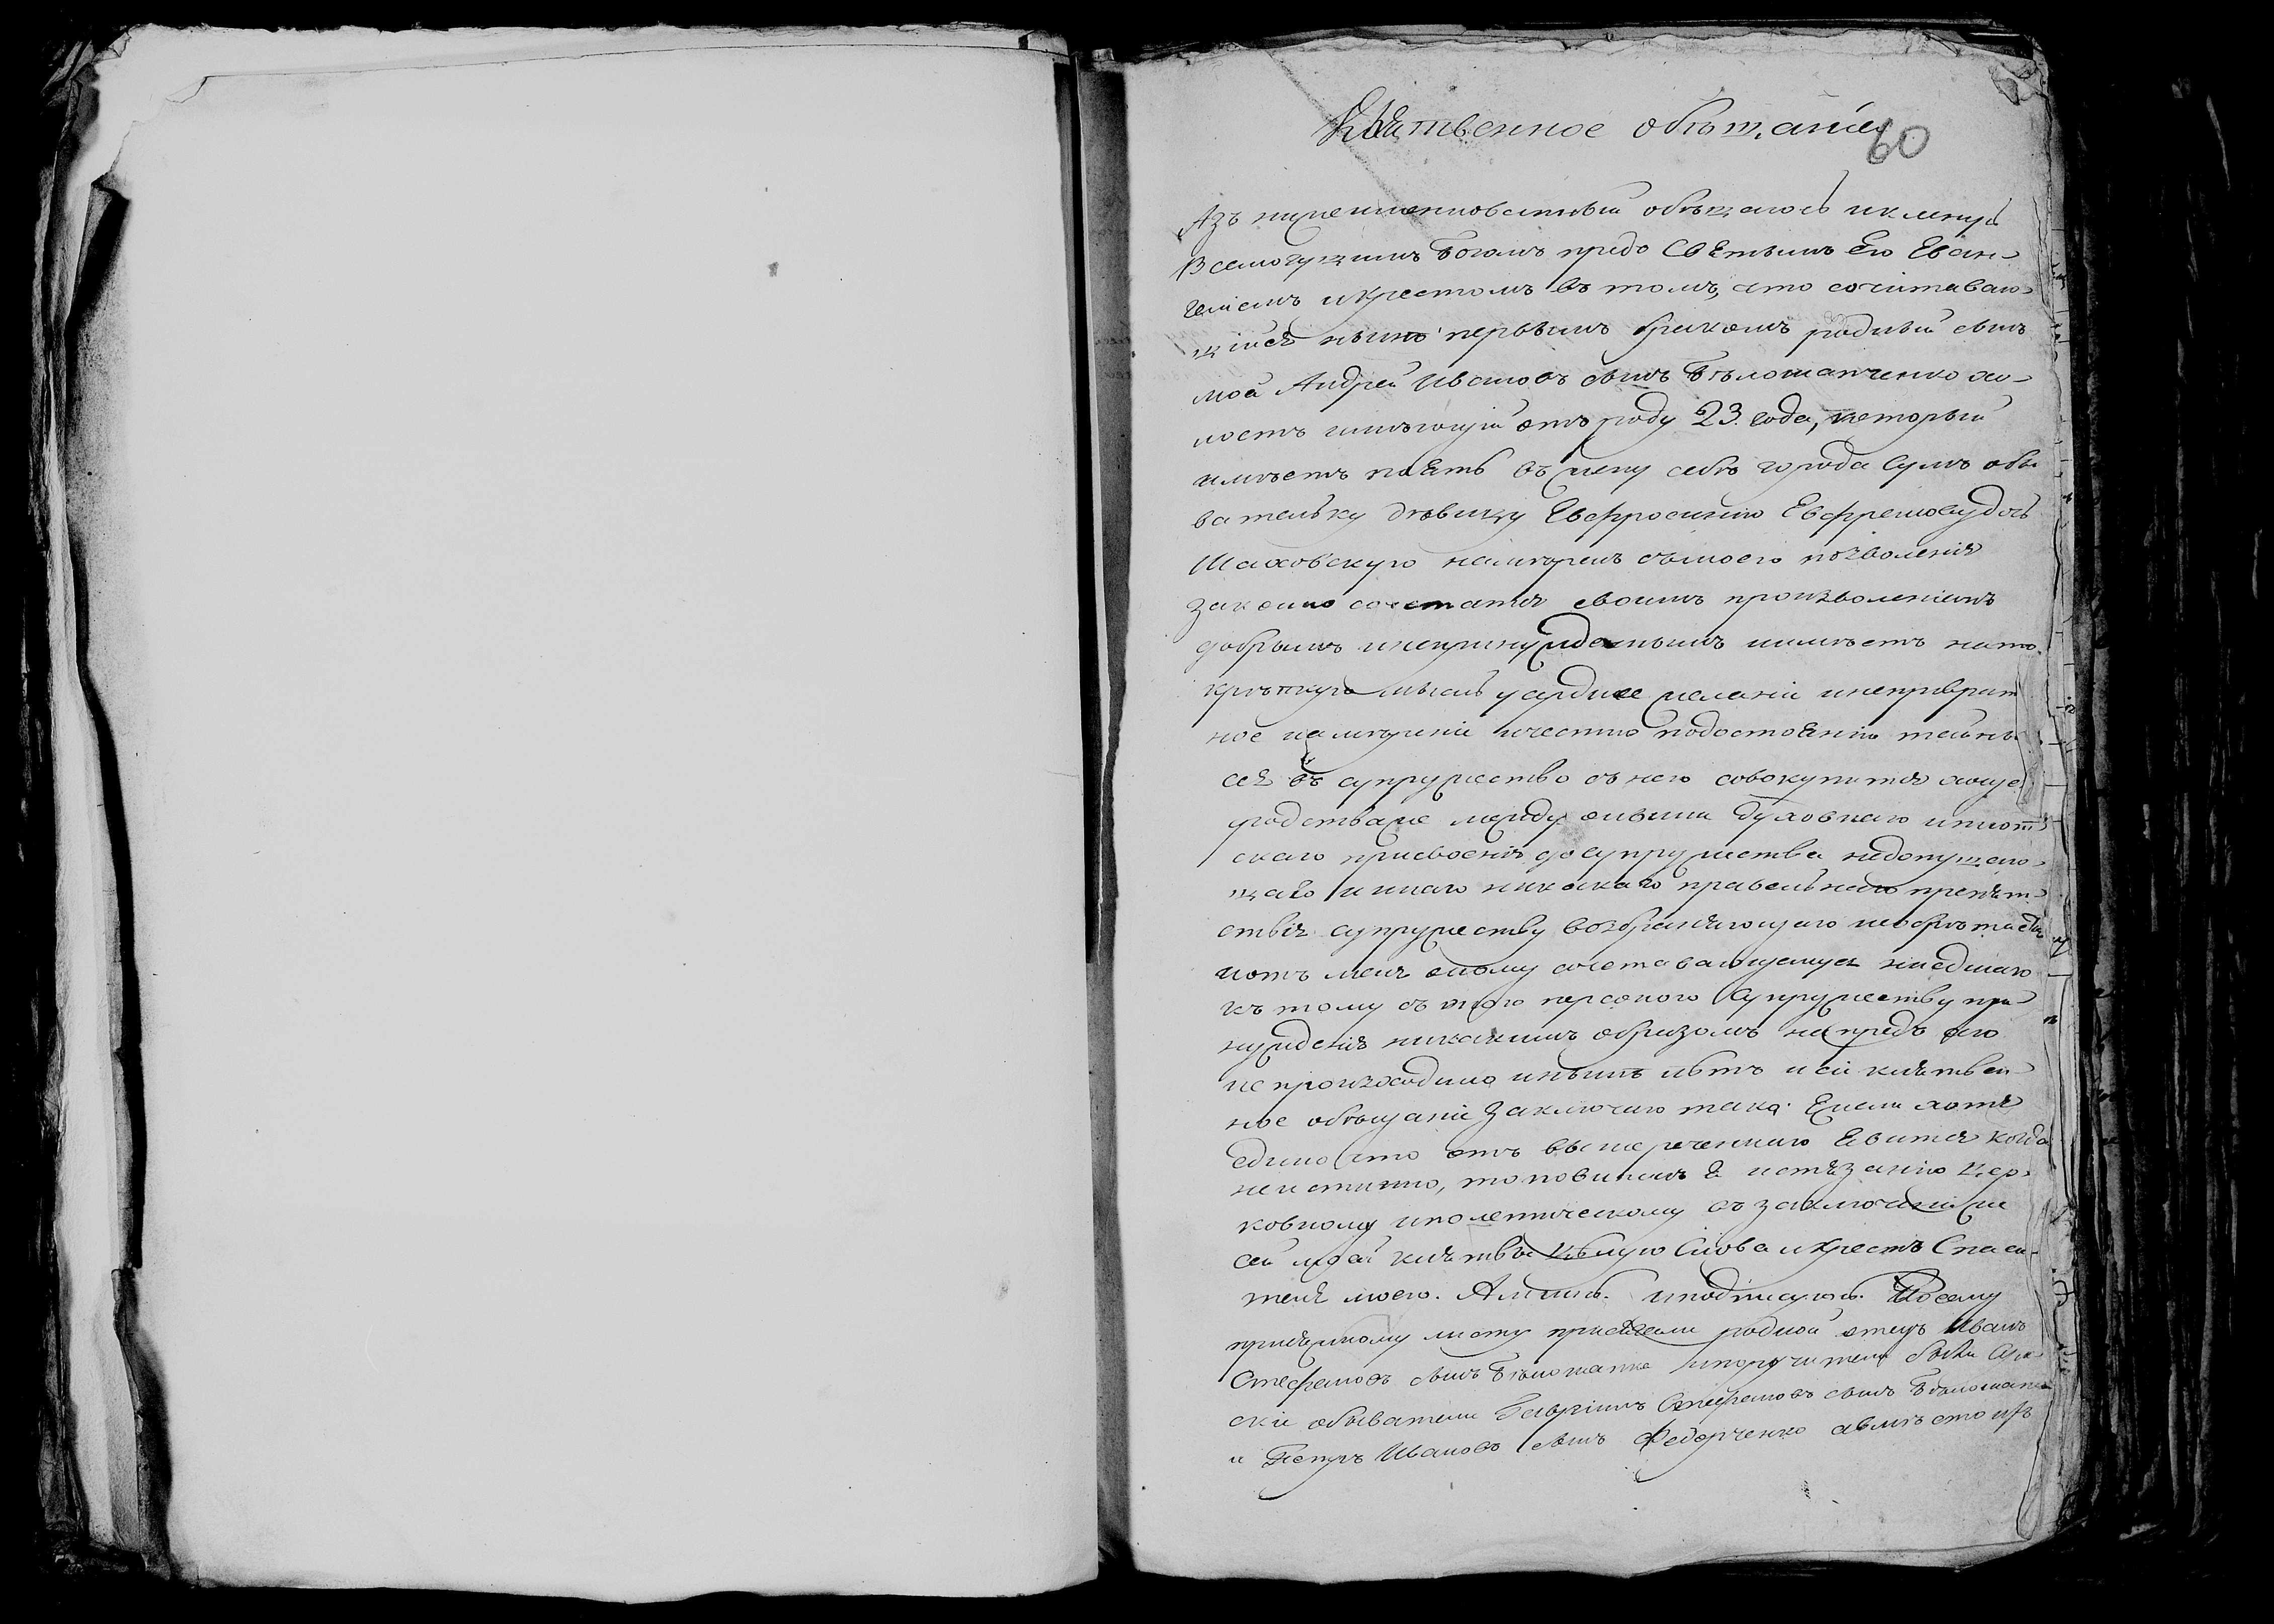 Клятвенное обѣщаніе
60
Азъ нижеименованный обѣщаюсь и кленусь
Всемогущимъ Богомъ предъ Святымъ Его Еван-
геліемъ и крестомъ въ томъ, что сочитаваю-
щійся нынѣ первымъ бракомъ родный сынъ
мой Андрей Ивановъ сынъ Бѣлошапченко хо-
лостъ имѣющій отъ роду 23. года, который
имѣетъ поять въ жену себѣ города Сумъ обы
вательку дѣвицу Евфросинію Евфремову дочь
Шаховскую намѣренъ съ моего позволенія
законно сочетатся своимъ произволеніемъ
добрымъ и непринужденнымъ и имѣетъ на то
крѣпкую мысль усердное желаніе и непреврат
ное намѣреніе и честно по достоянію тайны
сея въ супружество съ нею совокупится хощет
родства же между оными духовнаго и плот
скаго присвоенія до супружества недопущаю-
щаго и инаго никакого правельнаго препят-
ствія супружеству возбраняющаго не обрѣтается
и отъ мене оному сочетавающемуся ни единаго
къ тому съ тою персоною супружеству при
нужденія никакимъ образомъ напредъ сего
не произходило и нынѣ нѣтъ и сіе клятвен
ное обѣщаніе заключаю тако: Ежели хотя
едино что отъ вышереченнаго явится когда
не истинно, то повиненъ я истязанію цер-
ковному и политическому въ заключеніи же
сей моей клятвы цѣлую Слова и крестъ Спаси-
теля моего. Аминь. и подписуюсь. По сему
присяжному листу присягали родной отецъ Иванъ
Стефановъ сынъ Бѣлошапка и поручители были Сум
скіе обыватели Гавріилъ Стефановъ сынъ Бѣлошапка
и Петръ Ивановъ сынъ Федорченко а вмѣсто ихъ